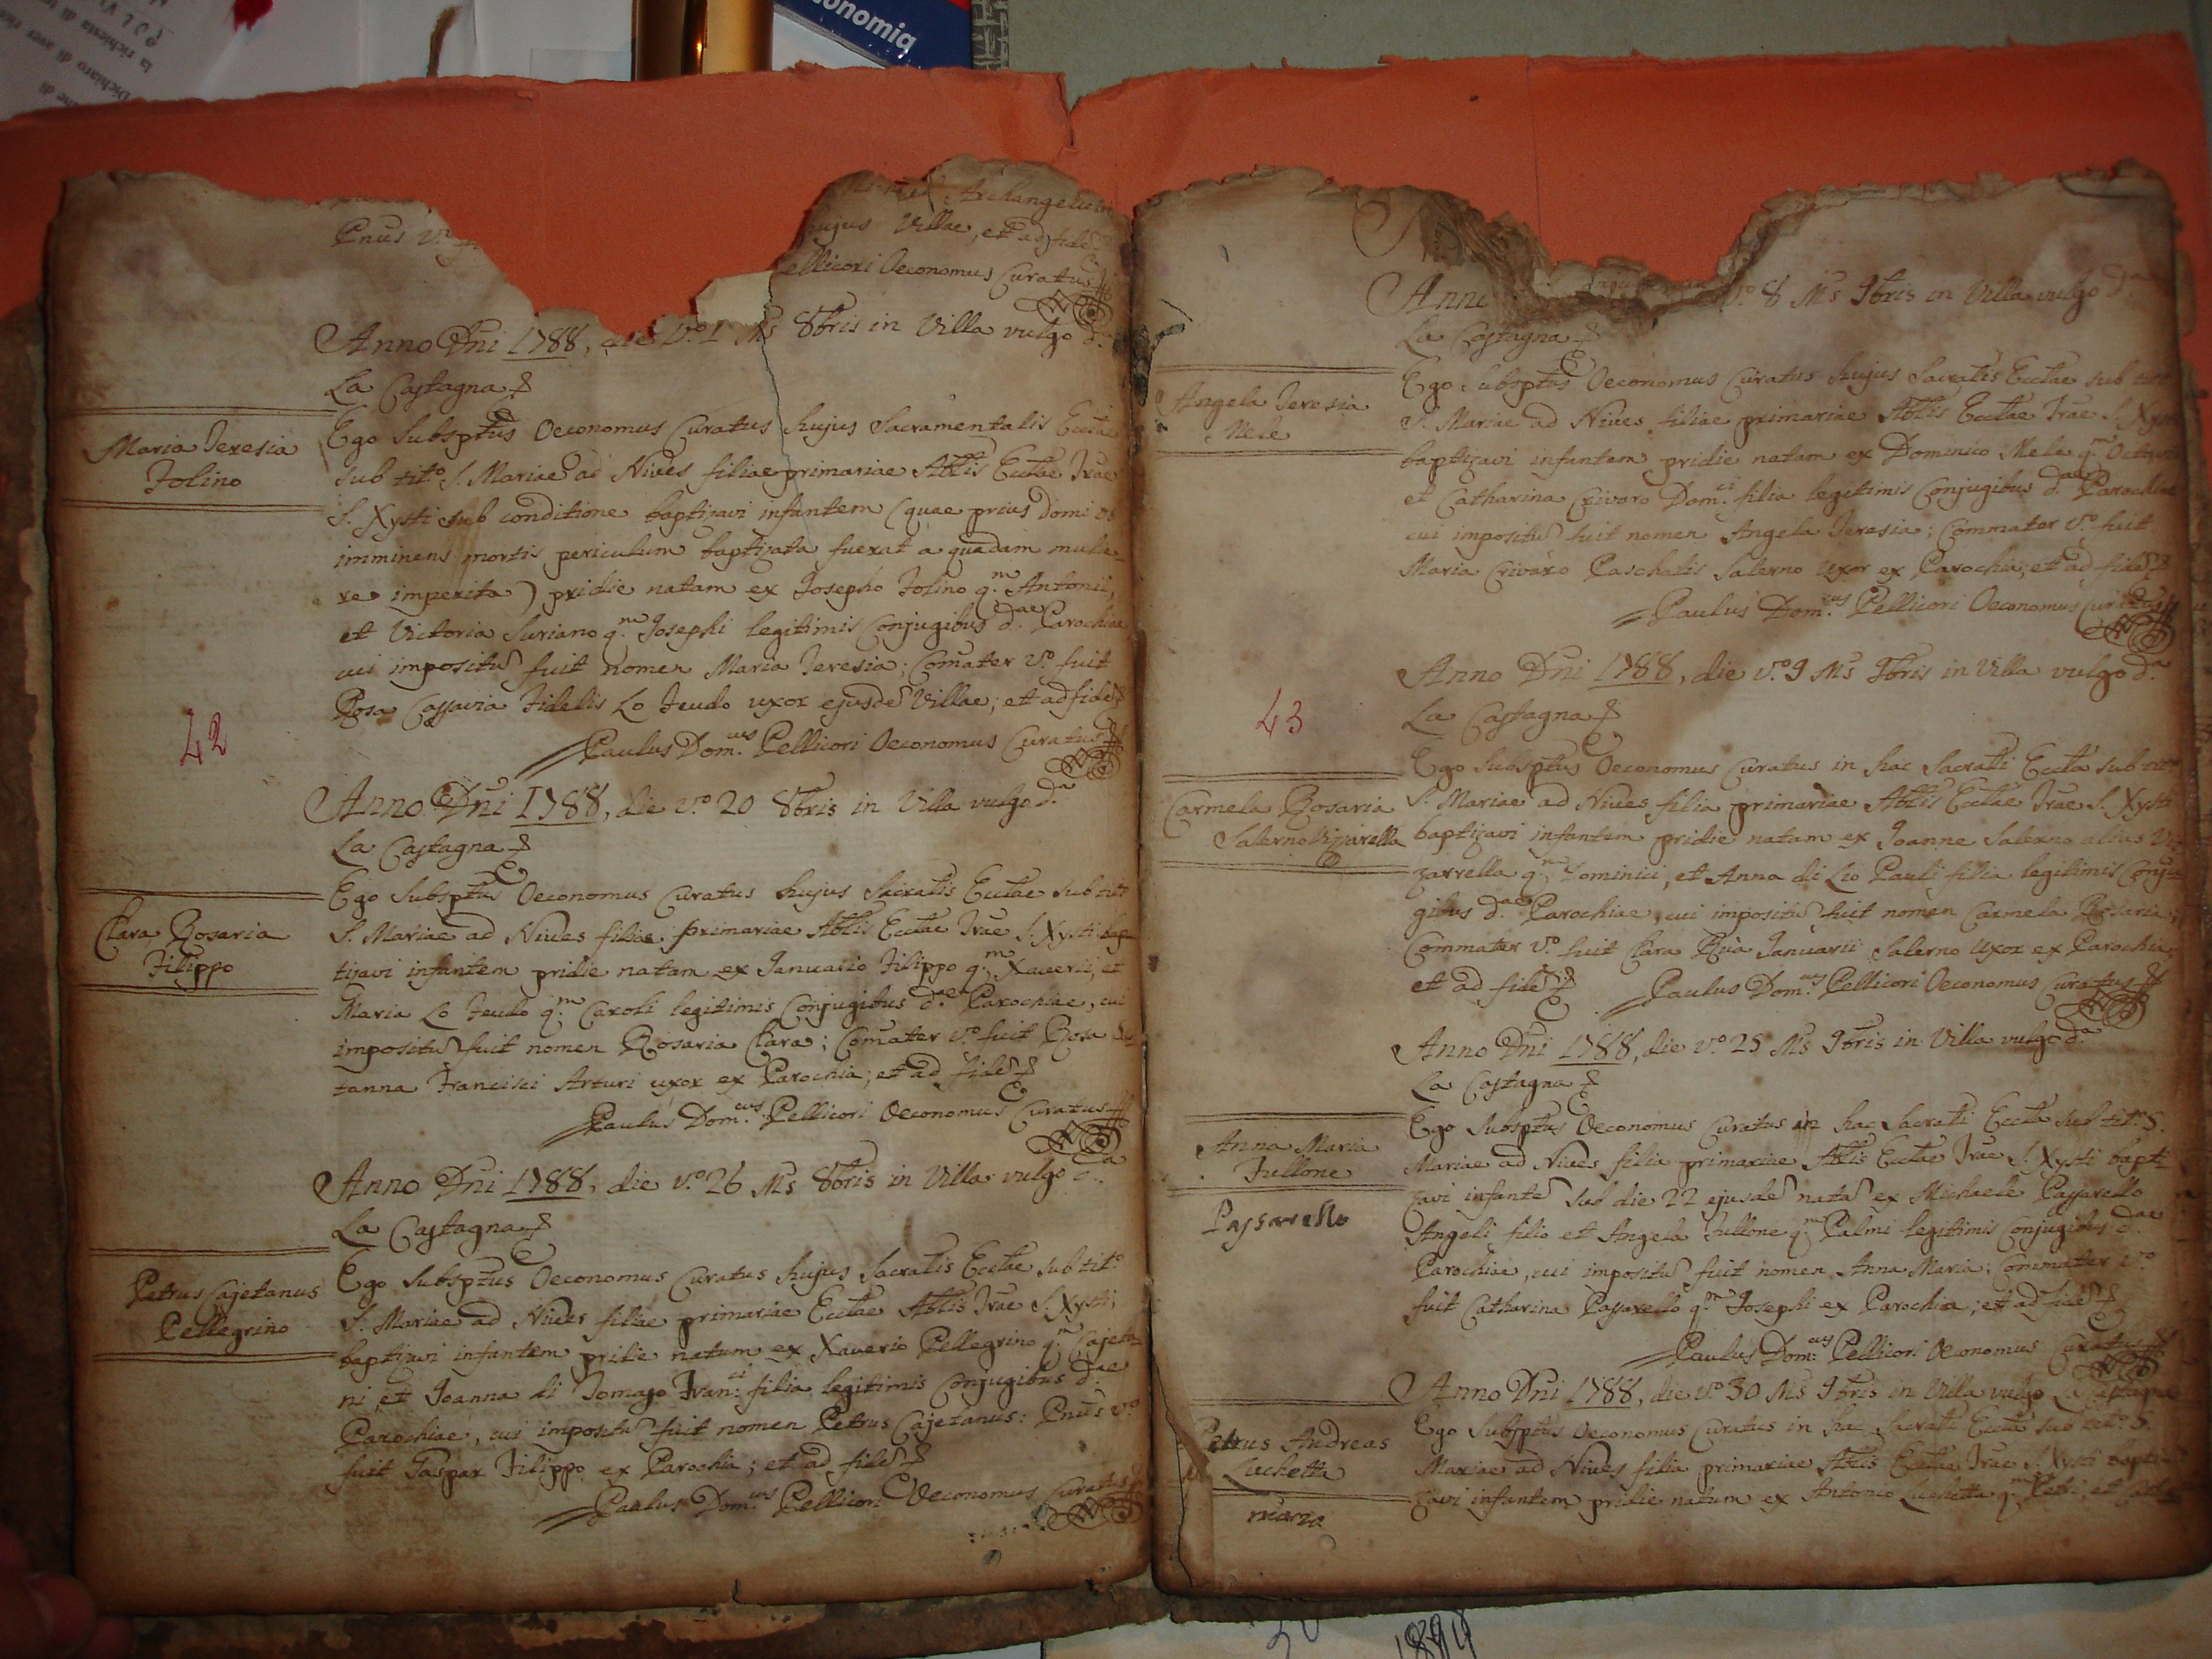 onomia
Pnus v.o
Archangelo
hujus Villae, et ad fidē
ellicori Oeconomus Curatus
Anno Dñi 1788, die v.o 1 Ms 8bris in Villa vulgo d.a
La Castagna
Maria Teresia
Folino
Ego Subsptus Oeconomus Curatus hujus Sacramentalis Ecclae
sub tit.o S. Mariae ad Nives filiae primariae Ablis Ecclae Trae
S. Xysti sub conditione baptizavi infantem (quae prius domi ob
imminens mortis periculum baptizata fuerat a quadam mulie
re imperita) pridie natam ex Josepho Folino q.m Antonii,
et Victoria Suriano q.m Josephi legitimis Conjugibus d.ae Parochiae
cui impositū fuit nomen Maria Teresia; Comater v.o fuit
Rosa Cassavia Fidelis Lo Feudo uxor ejusdē Villae; et ad fidē
Paulus Dom.cus Pellicori Oeconomus Curatus
42
Anno Dñi 1788, die v.o 20 8bris in Villa vulgo d.a
La Castagna
Clara Rosaria
Filippo
Ego Subsptus Oeconomus Curatus hujus Sacratis Ecclae sub tit.o
S. Mariae ad Nives filiae primariae Ablis Ecclae Trae S. Xysti bap
tizavi infantem pridie natam ex Januario Filippo q.m Xaverii, et
Maria Lo Feudo q.m Caroli legitimis Conjugibus d.ae Parochiae, cui
impositū fuit nomen Rosaria Clara; Comater v.o fuit Rosa
tanna Francisci Arturi uxor ex Parochia; et ad fidē
Paulus Dom.cus Pellicori Oeconomus Curatus
Anno Dñi 1788, die v.o 26 Ms 8bris in Villa vulgo d.a
La Castagna
Petrus Cajetanus
Pellegrino
Ego Subsptus Oeconomus Curatus hujus Sacratis Ecclae sub tit.o
S. Mariae ad Nives filiae primariae Ecclae Ablis Trae S. Xysti,
baptizavi infantem pridie natum ex Xaverio Pellegrino q.m Cajeta
ni, et Joanna di Tomaso Fran.ci filia legitimis Conjugibus d.ae
Parochiae, cui impositū fuit nomen Petrus Cajetanus: Pnus v.o
fuit Gaspar Filippo ex Parochia; et ad fidē
Paulus Dom.cus Pellicori Oeconomus Curatus
Anno v.o 8 Ms 9bris in Villa vulgo d.a
La Castagna
Angela Teresia
Mele
Ego Subsptus Oeconomus Curatus hujus Sacratis Ecclae sub tit.o
S. Mariae ad Nives filiae primariae Ablis Ecclae Trae S. Xysti
baptizavi infantem pridie natam ex Dominico Mele q.m
et Catharina Crivaro Dom.ci filia legitimis Conjugibus d.ae Parochiae
cui impositū fuit nomen Angela Teresia; Commater v.o fuit
Maria Crivaro Paschalis Salerno Uxor ex Parochia; et ad fidē
Paulus Dom.cus Pellicori Oeconomus Curatus
Anno Dñi 1788, die v.o 9 Ms 9bris in Villa vulgo d.a
43
La Castagna
Carmela Rosaria
Salerno Vizzarella
Ego Subsptus Oeconomus Curatus in hac Sacrati Eccla sub tit.o
S. Mariae ad Nives filia primariae Ablis Ecclae Trae S. Xysti
baptizavi infantem pridie natam ex Joanne Salerno alias Viz
zarrella q.m Dominici, et Anna di Lio Pauli filia legitimis Conju
gibus d.ae Parochiae, cui impositū fuit nomen Carmela Rosaria;
Commater v.o fuit Clara Rua Januarii Salerno Uxor ex Parochia,
et ad fidē
Paulus Dom.cus Pellicori Oeconomus Curatus
Anno Dñi 1788, die v.o 25 Ms 9bris in Villa vulgo d.a
La Castagna
Anna Maria
Fullone
Passarello
Ego Subsptus Oeconomus Curatus in hac Sacrati Eccla sub tit.o S.
Mariae ad Nives filia primariae Ablis Ecclae Trae S. Xysti bapti
zavi infantē sub die 22 ejusdē natā ex Michaele Passarello
Angeli filio et Angela Fullone q.m Palmi legitimis Conjugibus d.ae
Parochiae, cui impositū fuit nomen Anna Maria; Commater v.o
fuit Catharina Passarello q.m Josephi ex Parochia; et ad fidē
Paulus Dom.cus Pellicori Oeconomus Curatus
Anno Dñi 1788, die v.o 30 Ms 9bris in Villa vulgo La Castagna
Petrus Andreas
Luchetta
maria
Ego Subsptus Oeconomus Curatus in hac Sacrati Eccla sub tit.o S.
Mariae ad Nives filia primariae Ablis Ecclae Trae S. Xysti bapti
zavi infantem pridie natum ex Antonio Luchetta q.m Petri, et